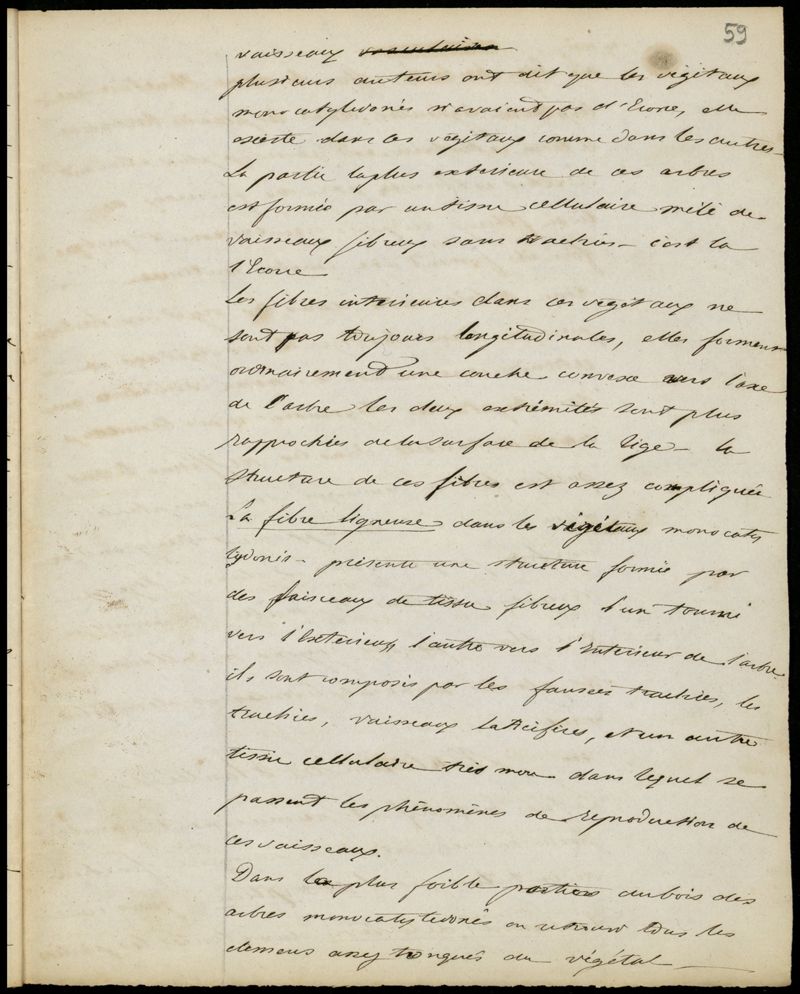 59
vaisseaux
plusieurs auteurs ont dit que les végétaux
monocatyledonés n'avaient pas d'Ecorce, elle
existe dans ces végétaux comme dans les autres
La partie la plus exterieure de ces arbres
est formée par un tissu cellulaire mêlé de
vaisseaux fibreux sans trachées - c'est la
l'Ecorce
Les fibres interieures dans ces vegetaux ne
sont pas toujours longitudinales, elles forment
ordinairement une courbe convexe vers l'axe
de l'arbre les deux extrémités sont plus
rapprochées de la surface de la tige - la
structure de ces fibres est assez compliquée
La fibre ligneuse dans les végétaux monocaty
lydonés - présente une structure formée par
des faisceaux de tissu fibreux l'un tourné
vers l'Exterieur l'autre vers l'Interieur de l'arbre
ils sont composés par les fausses trachées, les
trachées, vaisseaux laticifères, et un autre
tissu cellulaire très mou dans lequel se
passent les phénomènes de reproduction de
ces vaisseaux.
Dans la plus foible partie du bois des
arbres monocatyledonés on retrouve tous les
elemens du végétal